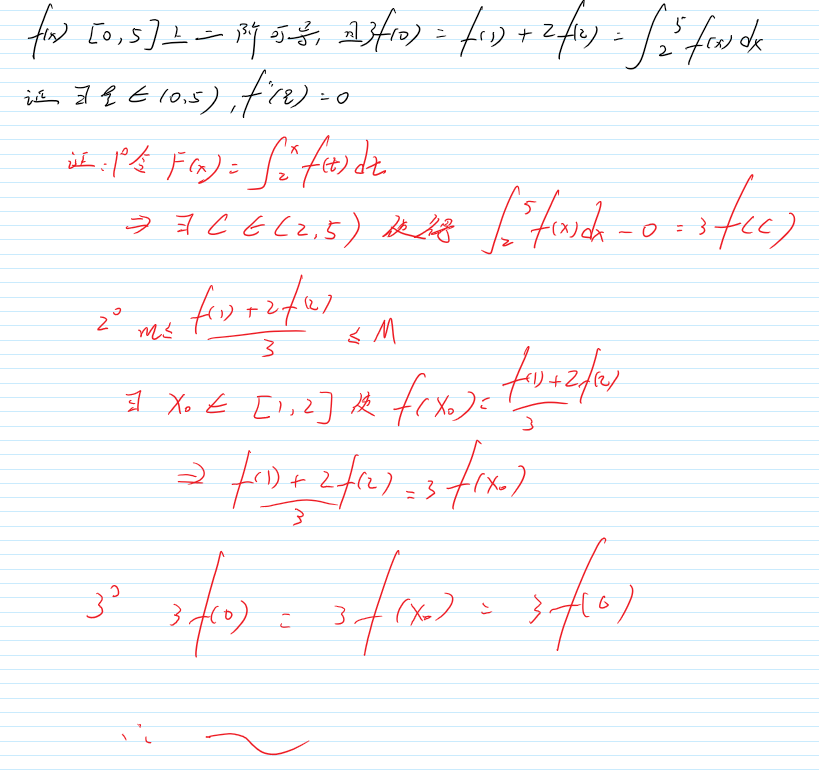 f(x) [0,5]上二阶可导, 且3f(0) = f(1) + 2f(2) = ∫₂⁵ f(x) dx
证 ∃ ξ ∈ (0,5), f''(ξ) = 0
证: 1° 令 F(x) = ∫₂ˣ f(t) dt
⇒ ∃ C ∈ (2,5) 使得 ∫₂⁵ f(x)dx - 0 = 3f(c)
2° m ≤ (f(1) + 2f(2))/3 ≤ M
∃ x₀ ∈ [1,2] 使 f(x₀) = (f(1)+2f(2))/3
⇒ (f(1) + 2f(2))/3 = 3f(x₀)
3° 3f(0) = 3f(x₀) = 3f(0)
∴ ~